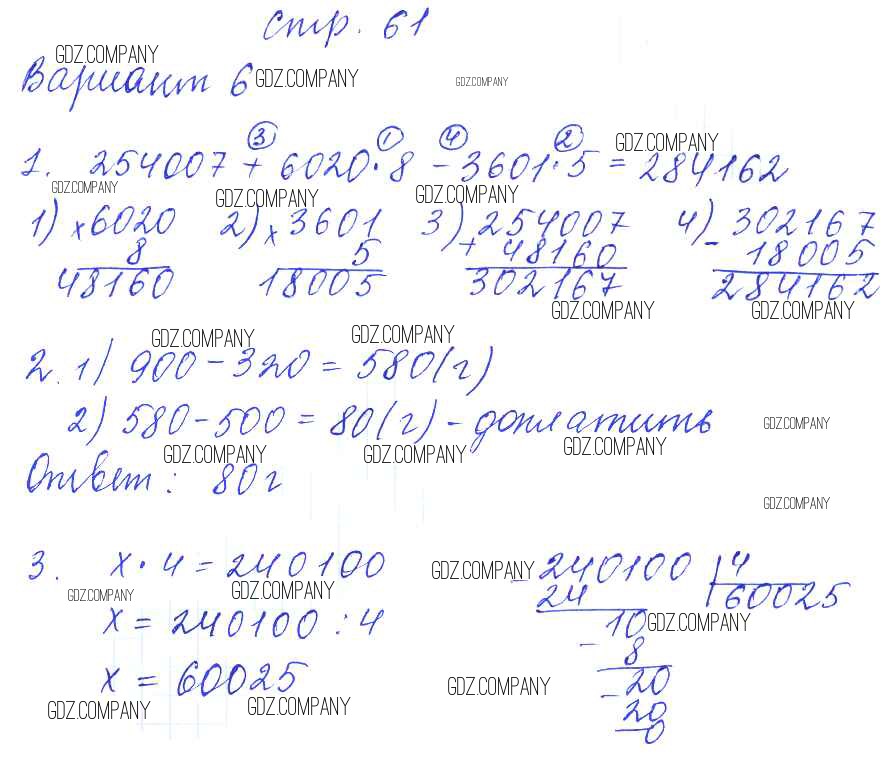 Стр. 61
GDZ.COMPANY
Вариант 6 GDZ.COMPANY GDZ.COMPANY
3 1 4 2 GDZ.COMPANY
1. 254007 + 6020 · 8 - 3601 · 5 = 284162
GDZ.COMPANY GDZ.COMPANY GDZ.COMPANY
1) × 6020 2) × 3601 3) + 254007 4) - 302167
8 5 48160 18005
48160 18005 302167 284162
GDZ.COMPANY GDZ.COMPANY
GDZ.COMPANY GDZ.COMPANY
2. 1) 900 - 320 = 580 (г)
2) 580 - 500 = 80 (г) - доплатить GDZ.COMPANY
GDZ.COMPANY GDZ.COMPANY GDZ.COMPANY
Ответ: 80 г
GDZ.COMPANY
3. x · 4 = 240100 GDZ.COMPANY - 240100 | 4
GDZ.COMPANY GDZ.COMPANY 24 60025
x = 240100 : 4 10 GDZ.COMPANY
- 8
x = 60025 GDZ.COMPANY - 20
GDZ.COMPANY GDZ.COMPANY 20
0